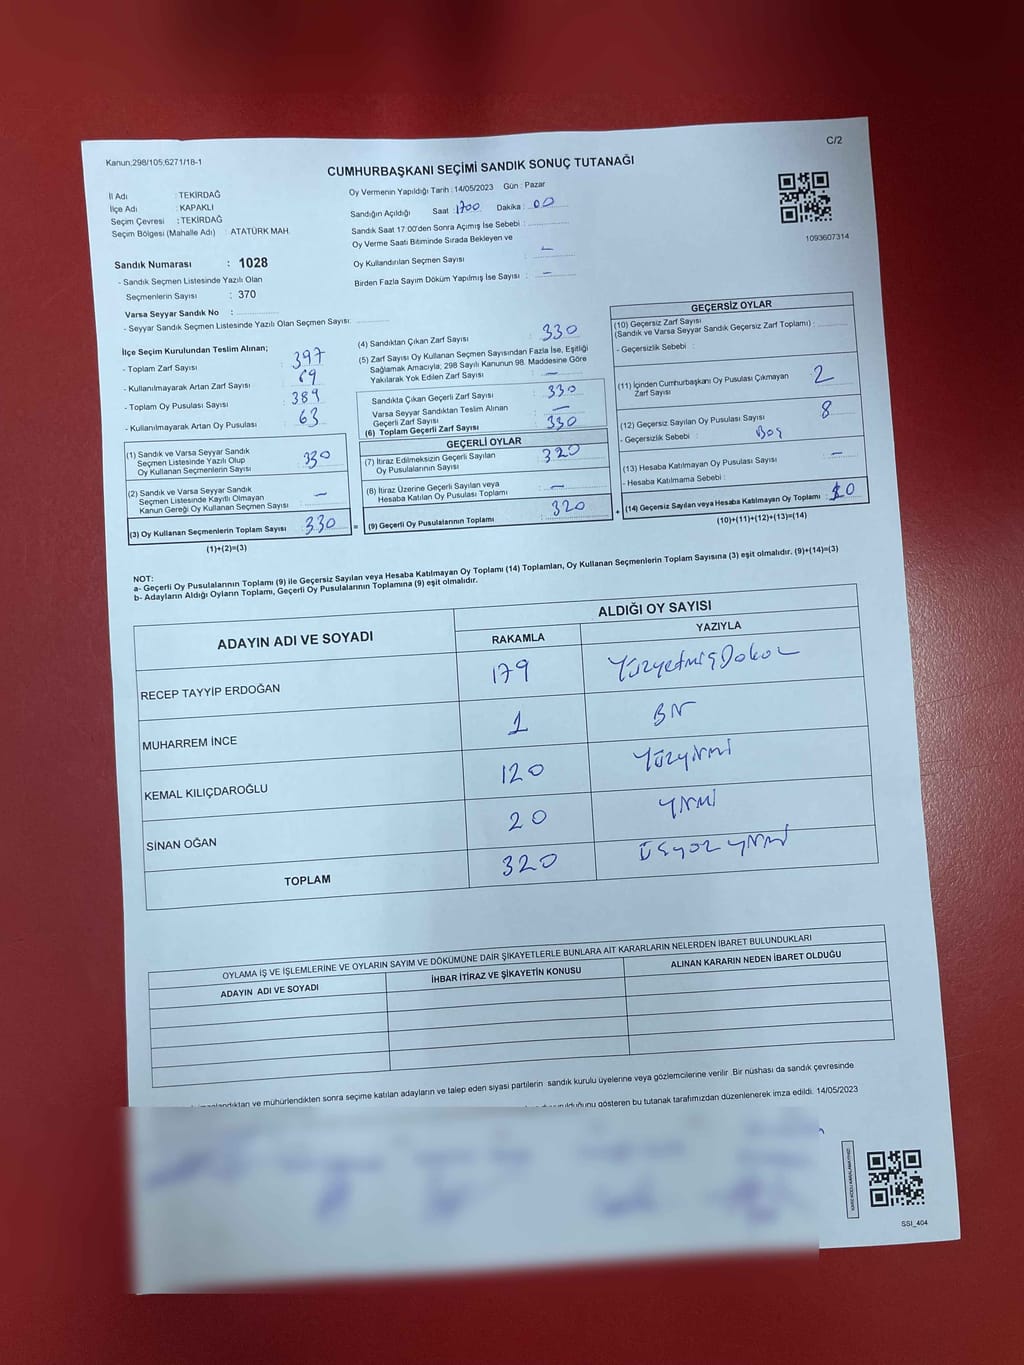 Kanun:298/105,6271/18-1
C/2
CUMHURBAŞKANI SEÇİMİ SANDIK SONUÇ TUTANAĞI
İl Adı : TEKİRDAĞ
İlçe Adı : KAPAKLI
Seçim Çevresi : TEKİRDAĞ
Seçim Bölgesi (Mahalle Adı) : ATATÜRK MAH.
Oy Vermenin Yapıldığı Tarih : 14/05/2023 Gün : Pazar
Sandığın Açıldığı Saat : 1700 Dakika : 00
Sandık Saat 17:00'den Sonra Açımış İse Sebebi :
Oy Verme Saati Bitiminde Sırada Bekleyen ve
Oy Kullandırılan Seçmen Sayısı : –
Birden Fazla Sayım Döküm Yapılmış İse Sayısı : –
1093607314
Sandık Numarası : 1028
- Sandık Seçmen Listesinde Yazılı Olan
Seçmenlerin Sayısı : 370
Varsa Seyyar Sandık No :
- Seyyar Sandık Seçmen Listesinde Yazılı Olan Seçmen Sayısı:
İlçe Seçim Kurulundan Teslim Alınan;
- Toplam Zarf Sayısı : 397
- Kullanılmayarak Artan Zarf Sayısı : 69
- Toplam Oy Pusulası Sayısı : 389
- Kullanılmayarak Artan Oy Pusulası : 63
(1) Sandık ve Varsa Seyyar Sandık
Seçmen Listesinde Yazılı Olup
Oy Kullanan Seçmenlerin Sayısı : 330
(2) Sandık ve Varsa Seyyar Sandık
Seçmen Listesinde Kayıtlı Olmayan
Kanun Gereği Oy Kullanan Seçmen Sayısı : –
(3) Oy Kullanan Seçmenlerin Toplam Sayısı : 330
(1)+(2)=(3)
(4) Sandıktan Çıkan Zarf Sayısı : 330
(5) Zarf Sayısı Oy Kullanan Seçmen Sayısından Fazla İse, Eşitliği
Sağlamak Amacıyla, 298 Sayılı Kanunun 98. Maddesine Göre
Yakılarak Yok Edilen Zarf Sayısı : –
Sandıkta Çıkan Geçerli Zarf Sayısı : 330
Varsa Seyyar Sandıktan Teslim Alınan
Geçerli Zarf Sayısı : –
(6) Toplam Geçerli Zarf Sayısı : 330
GEÇERLİ OYLAR
(7) İtiraz Edilmeksizin Geçerli Sayılan
Oy Pusulalarının Sayısı : 320
(8) İtiraz Üzerine Geçerli Sayılan veya
Hesaba Katılan Oy Pusulası Toplamı : –
= (9) Geçerli Oy Pusulalarının Toplamı : 320
GEÇERSİZ OYLAR
(10) Geçersiz Zarf Sayısı
(Sandık ve Varsa Seyyar Sandık Geçersiz Zarf Toplamı) :
- Geçersizlik Sebebi :
(11) İçinden Cumhurbaşkanı Oy Pusulası Çıkmayan
Zarf Sayısı : 2
(12) Geçersiz Sayılan Oy Pusulası Sayısı : 8
- Geçersizlik Sebebi : Boş
(13) Hesaba Katılmayan Oy Pusulası Sayısı : –
- Hesaba Katılmama Sebebi :
+ (14) Geçersiz Sayılan veya Hesaba Katılmayan Oy Toplamı : 10
(10)+(11)+(12)+(13)=(14)
NOT:
a- Geçerli Oy Pusulalarının Toplamı (9) ile Geçersiz Sayılan veya Hesaba Katılmayan Oy Toplamı (14) Toplamları, Oy Kullanan Seçmenlerin Toplam Sayısına (3) eşit olmalıdır. (9)+(14)=(3)
b- Adayların Aldığı Oyların Toplamı, Geçerli Oy Pusulalarının Toplamına (9) eşit olmalıdır.
ADAYIN ADI VE SOYADI
ALDIĞI OY SAYISI
RAKAMLA YAZIYLA
RECEP TAYYİP ERDOĞAN 179 Yüzyetmiş Dokuz
MUHARREM İNCE 1 Bir
KEMAL KILIÇDAROĞLU 120 Yüzyirmi
SİNAN OĞAN 20 Yirmi
TOPLAM 320 Üçyüz yirmi
OYLAMA İŞ VE İŞLEMLERİNE VE OYLARIN SAYIM VE DÖKÜMÜNE DAİR ŞİKAYETLERLE BUNLARA AİT KARARLARIN NELERDEN İBARET BULUNDUKLARI
ADAYIN ADI VE SOYADI İHBAR İTİRAZ VE ŞİKAYETİN KONUSU ALINAN KARARIN NEDEN İBARET OLDUĞU
ve mühürlendikten sonra seçime katılan adayların ve talep eden siyasi partilerin sandık kurulu üyelerine veya gözlemcilerine verilir .Bir nüshası da sandık çevresinde
gösteren bu tutanak tarafımızdan düzenlenerek imza edildi. 14/05/2023
SSI_404